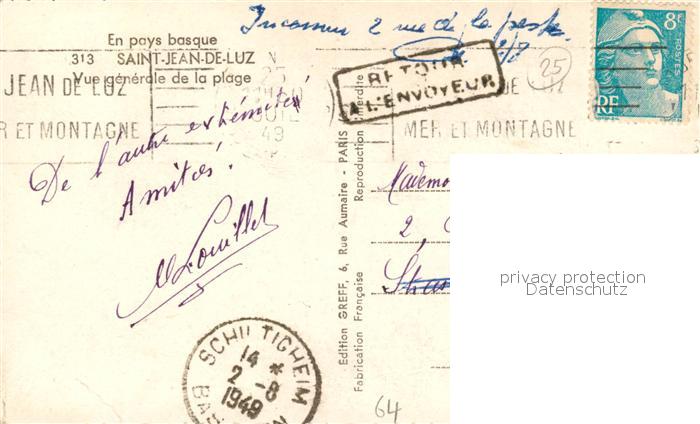 Inconnu 2 rue de la poste
En pays basque
313 SAINT-JEAN-DE-LUZ
Vue générale de la plage
JEAN DE LUZ
ER ET MONTAGNE
25
1949
RETOUR
A L'ENVOYEUR
DE
MER ET MONTAGNE
25
8F
RF
De l'autre extrémité
Amitiés!
Edition GREFF, 6, Rue Aumaire - PARIS
Fabrication Française
Reproduction Interdite
Mademo
2,
Stras
privacy protection
Datenschutz
SCHILTIGHEIM
14 *
2 -8
1949
BAS
64